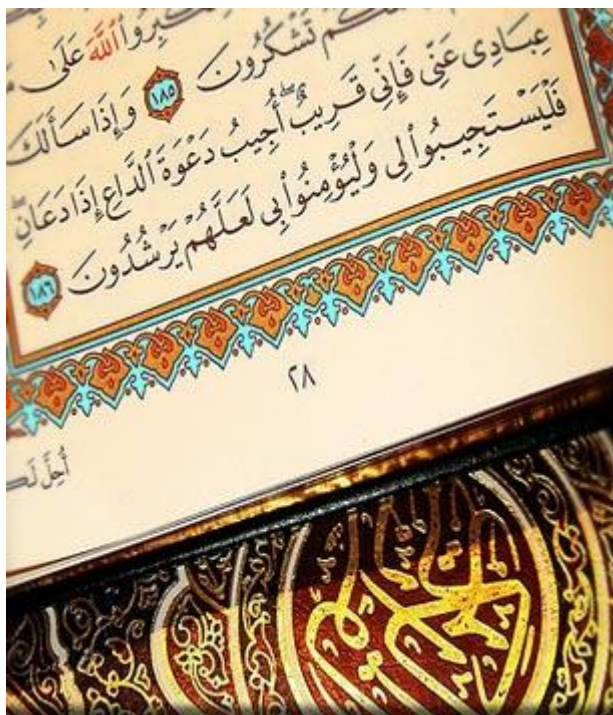 تُكَبِّرُوا۟ ٱللَّهَ عَلَىٰ
تَشْكُرُونَ ١٨٥ وَإِذَا سَأَلَكَ
عِبَادِى عَنِّى فَإِنِّى قَرِيبٌ ۖ أُجِيبُ دَعْوَةَ ٱلدَّاعِ إِذَا دَعَانِ ۖ
فَلْيَسْتَجِيبُوا۟ لِى وَلْيُؤْمِنُوا۟ بِى لَعَلَّهُمْ يَرْشُدُونَ ١٨٦
٢٨
أُحِلَّ